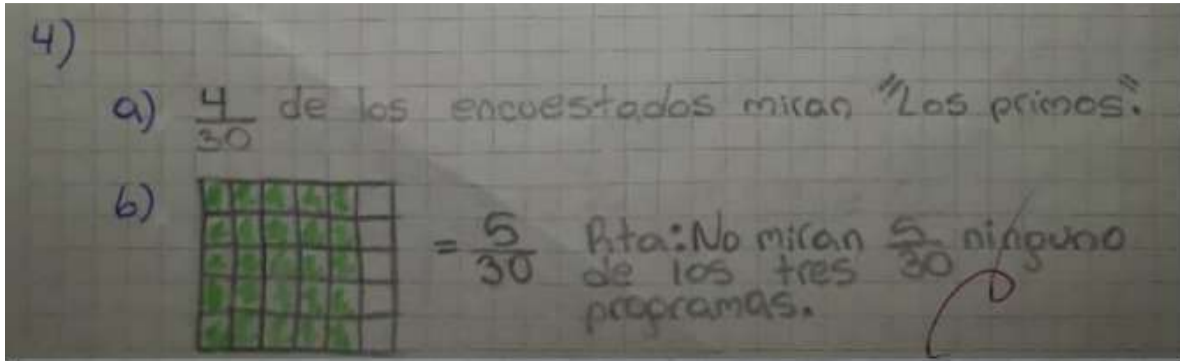 4)
a) 4/30 de los encuestados miran "Los primos".
b) = 5/30 Rta: No miran 5/30 ninguno
de los tres
programas.